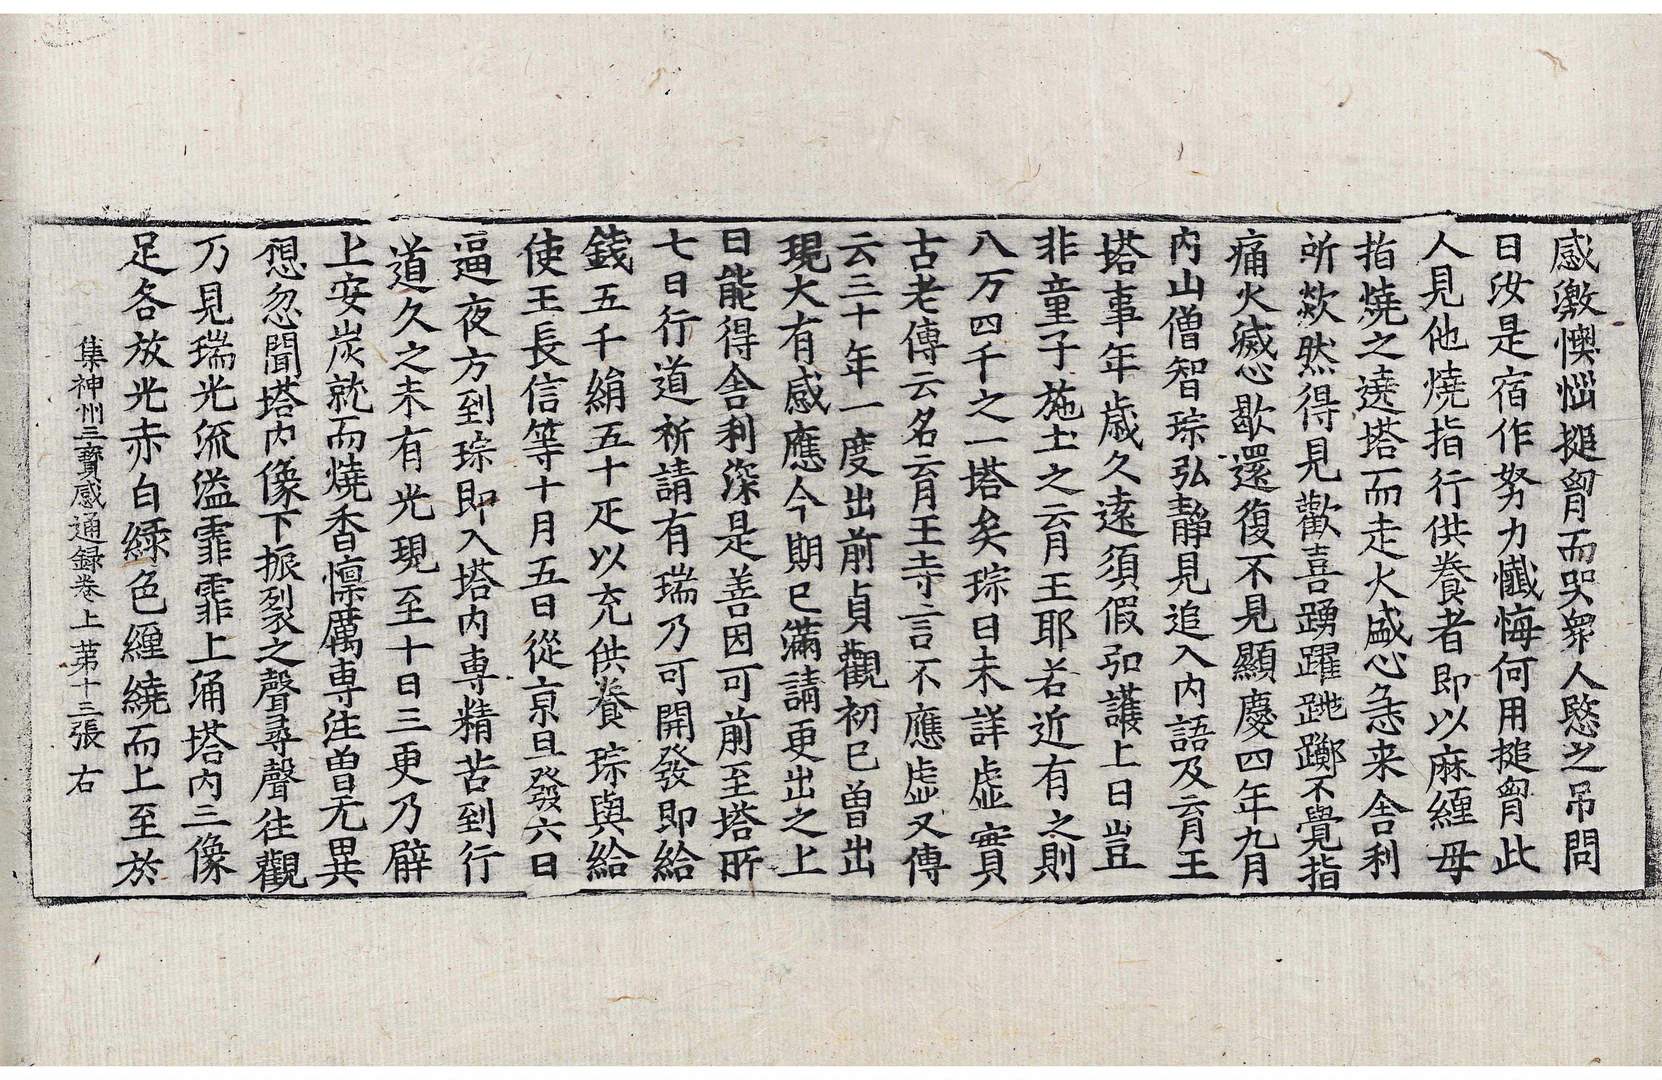 感激懊惱搥胷而哭衆人愍之吊問
曰汝是宿作努力懺悔何用搥胷此
人見他燒指行供養者即以麻纏母
指燒之遶塔而走火盛心急来舍利
所欻然得見歡喜踴躍跳躑不覺指
痛火滅心歇還復不見顯慶四年九月
内山僧智琮弘靜見追入内語及育王
塔事年歲久遠須假弘護上曰豈
非童子施土之育王耶若近有之則
八万四千之一塔矣琮曰未詳虛實
古老傳云名育王寺言不應虛又傳
云三十年一度出前貞觀初已曾出
現大有感應今期已滿請更出之上
曰能得舍利深是善因可前至塔所
七日行道祈請有瑞乃可開發即給
錢五千絹五十疋以充供養琮與給
使王長信等十月五日從京旦發六日
逼夜方到琮即入塔内專精苦到行
道久之未有光現至十日三更乃臂
上安炭就而燒香懔厲專注曽无異
想忽聞塔内像下振裂之聲尋聲往觀
乃見瑞光流溢霏霏上涌塔内三像
足各放光赤白綠色纏繞而上至於
集神州三寶感通録卷上 苐十三張 右